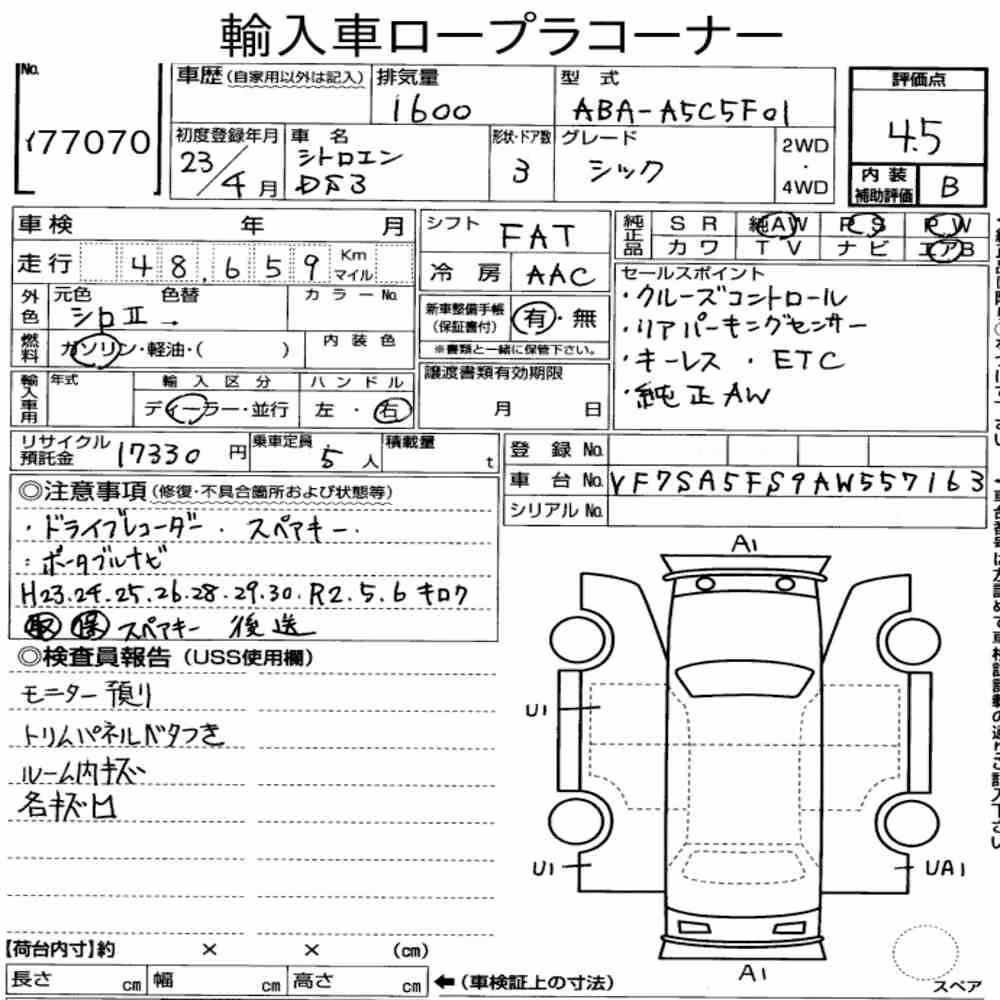 輸入車ロープラコーナー
No. 77070
車歴(自家用以外は記入) 排気量 1600 型式 ABA-A5C5F01 評価点 4.5
初度登録年月 23/4月 車名 シトロエン DS3 形状・ドア数 3 グレード シック 2WD・4WD 内装補助評価 B
車検 年 月 シフト FAT 純正品 SR 純AW PS PW
走行 48,659 Km マイル 冷房 AAC カワ TV ナビ エアB
外色 元色 シロⅡ 色替 → カラーNo. 新車整備手帳(保証書付) 有・無
※書類と一緒に保管下さい。
燃料 ガソリン・軽油・( ) 内装色
輸入車用 年式 輸入区分 ディーラー・並行 ハンドル 左・右 譲渡書類有効期限 月 日
セールスポイント
・クルーズコントロール
・リアパーキングセンサー
・キーレス ・ETC
・純正AW
リサイクル預託金 17330円 乗車定員 5人 積載量 t
登録No.
車台No. VF7SA5FS9AW557163
シリアルNo.
◎注意事項(修復・不具合箇所および状態等)
・ドライブレコーダー・スペアキー・
:ポータブルナビ
H23.24.25.26.28.29.30.R2.5.6キロク
取 保 スペアキー 後送
◎検査員報告(USS使用欄)
モニター預り
トリムパネルベタつき
ルーム内キズ
各キズ凹
A1
U1
U1
UA1
A1
スペア
【荷台内寸】約 × × (cm)
長さ cm 幅 cm 高さ cm ←(車検証上の寸法)